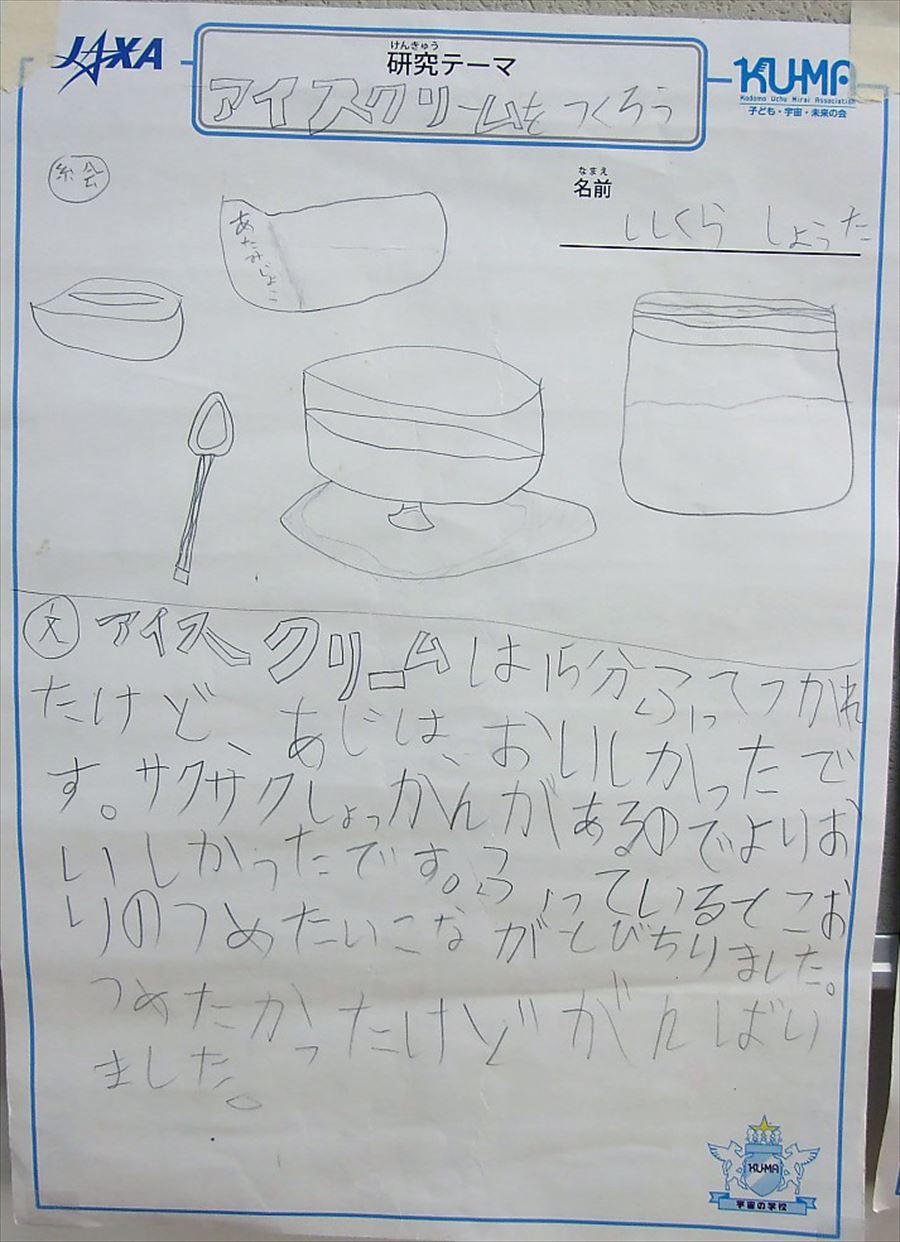 JAXA
けんきゅう
研究テーマ
アイスクリームをつくろう
KU-MA
Kodomo Uchu Mirai Association
子ども・宇宙・未来の会
絵
なまえ
名前
いしくら しょうた
文 アイスクリームは15分ふってつかれ
たけど、あじは、おいしかったで
す。サクサクしょっかんがあるのでよりお
いしかったです。ふっているとこお
りのつめたいこながとびちりました。
つめたかったけどがんばり
ました。
KU-MA
宇宙の学校